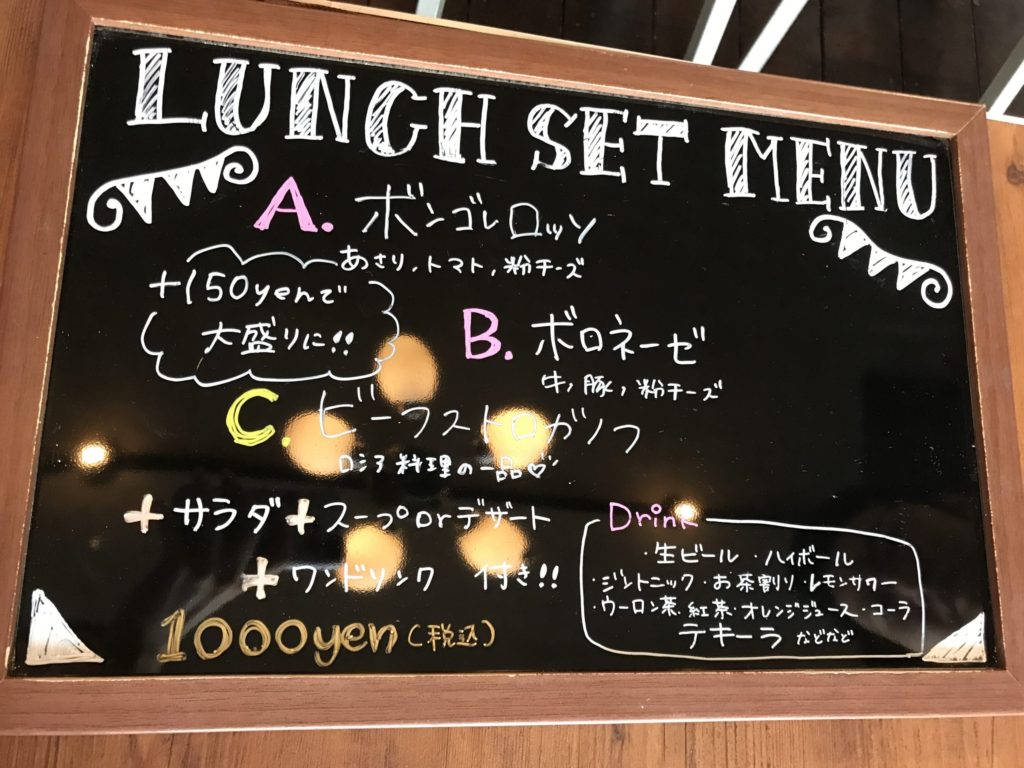 LUNCH SET MENU
A. ボンゴレロッソ
あさり、トマト、粉チーズ
+150yenで
大盛りに!!
B. ボロネーゼ
牛、豚、粉チーズ
C. ビーフストロガノフ
ロシア料理の一品♡
+サラダ+スープorデザート
+ワンドリンク 付き!!
1000yen(税込)
Drink
・生ビール ・ハイボール
・ジントニック・お茶割り・レモンサワー
・ウーロン茶・紅茶・オレンジジュース・コーラ
テキーラ などなど